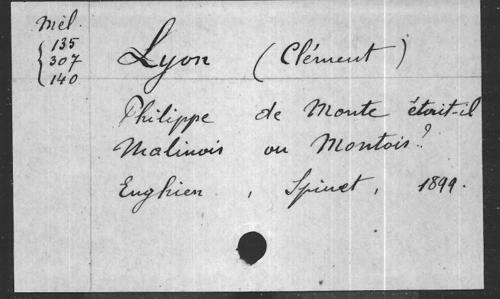 Mél.
135
307
140
Lyon (Clément)
Philippe de Monte était-il
Malinois ou Montois?
Enghien, Spinet, 1899.